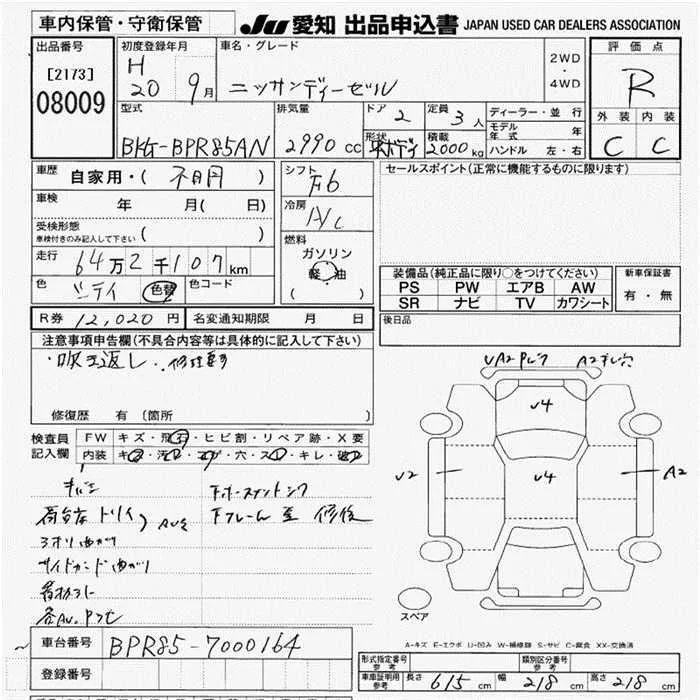 車内保管・守衛保管
JU 愛知 出品申込書 JAPAN USED CAR DEALERS ASSOCIATION
出品番号
[2173]
08009
初度登録年月
H
20 9月
車名・グレード
ニッサンディーゼル
2WD
・
4WD
評価点
R
外装 内装
C C
型式
BKG-BPR85AN
排気量
2990 cc
ドア 2
形状
定員 3人
積載
2000 kg
ディーラー・並行
モデル年式 年
ハンドル 左・右
車歴
自家用・( 不明 )
車検
年 月( 日)
受検形態
車検付きのみ記入して下さい ( )
走行
64万2千107km
色
色替
色コード
シフト
F6
冷房
A/C
燃料
ガソリン
軽油
( )
セールスポイント(正常に機能するものに限ります)
装備品(純正品に限り○をつけてください)
PS PW エアB AW
SR ナビ TV カワシート
新車保証書
有・無
R券 12,020円
名変通知期限 月 日
後日品
注意事項申告欄(不具合内容等は具体的に記入して下さい)
・吹き返し、修理要す
修復歴 有 〔箇所 〕
検査員
記入欄
FW キズ・飛石・ヒビ割・リペア跡・X要
内装 キズ・汚れ・コゲ・穴・スレ・キレ・破レ
荷台床
下フレーム 修復
サイドガード曲がり
UA2 A2
U4
U2 U4 A2
スペア
A-キズ E-エクボ U-凹み W-補修跡 S-サビ C-腐食 XX-交換済
車台番号
BPR85-7000164
登録番号
型式指定番号
参考
類別区分番号
参考
車庫証明用
参考
長さ 615cm 幅 218cm 高さ 218cm